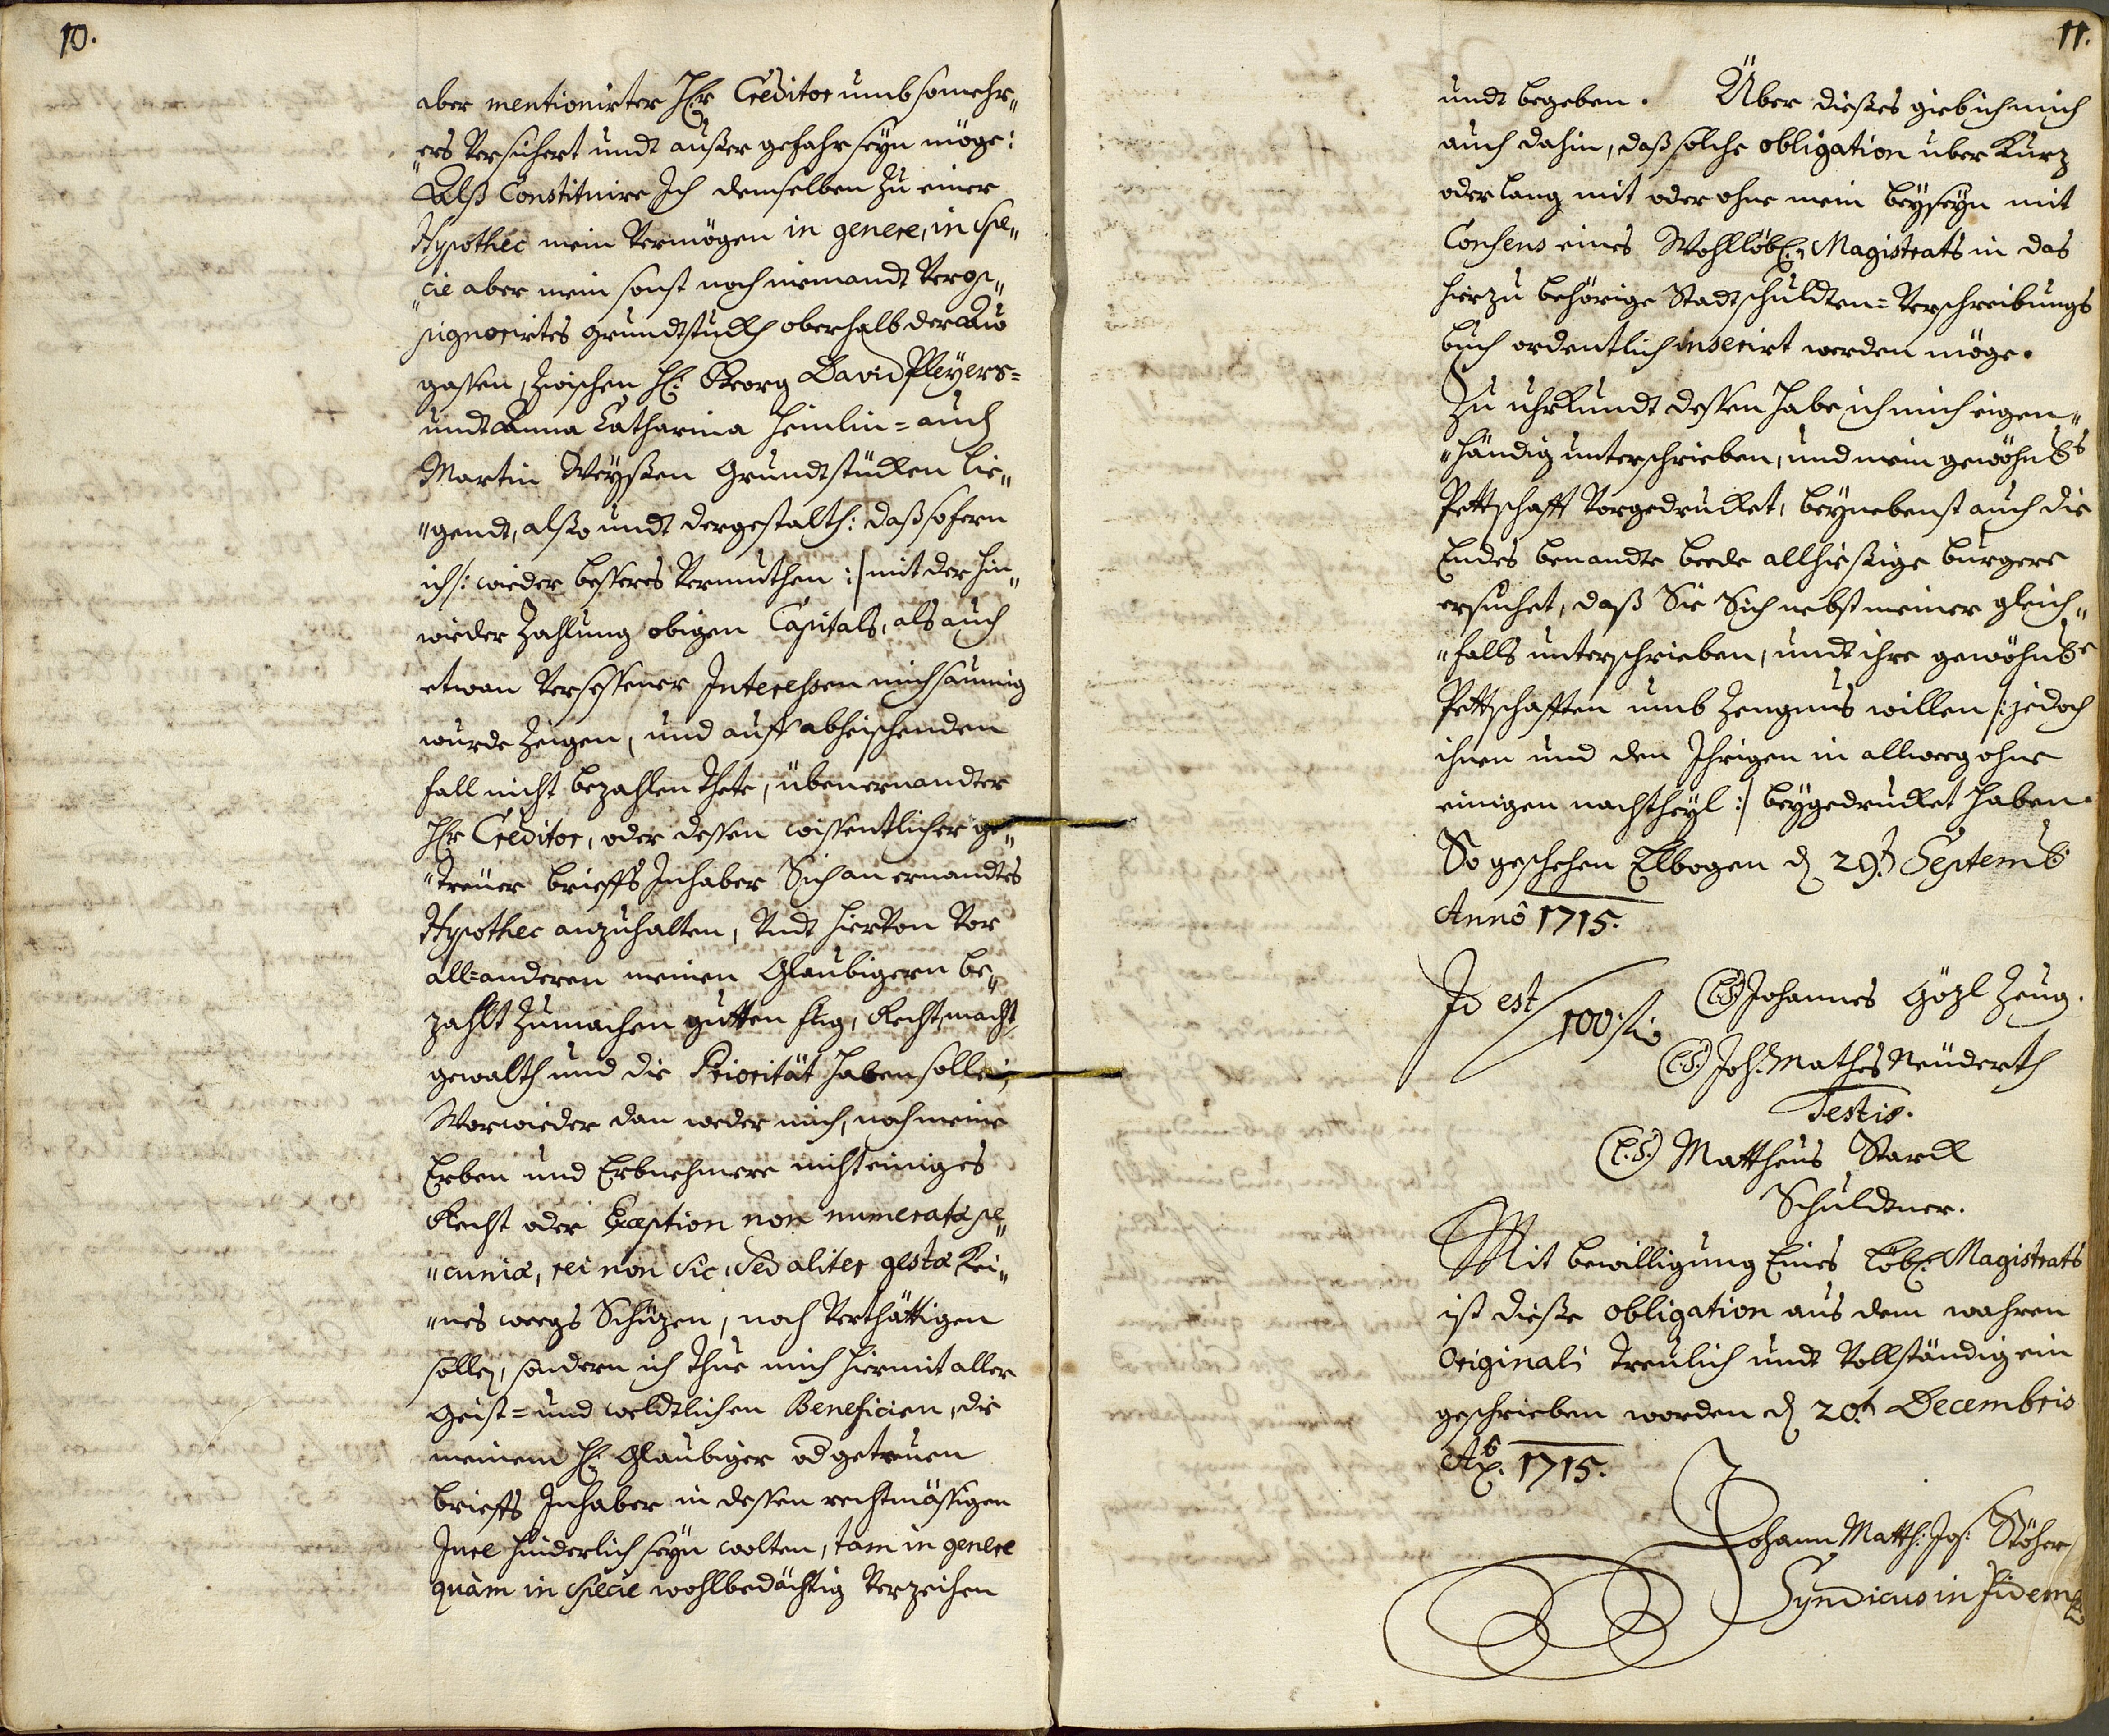 10.
aber mentionirter Hr Creditor umb somehr„
„ers versichert undt außer gefahr seyn möge:
Alß Constituire Ich demselben zu einer
Hypothec mein vermögen in genere, in Spe„
„cie aber mein sonst noch niemandt verop„
pignorirtes grundtstuckh oberhalb der Au
gassen, zwischen H: Georg David Pleyers=
undt Anna Catharina Heinlin= auch
Martin Weyßen Grundtstücken lie„
„gendt, also undt dergestalth: daß sofern
ich /: wieder besseres vermuthen :/ mit der hin„
wieder Zahlung obigen Capitals, als auch
etwan versessener Interessen mich saumig
wurde zeigen, und auff abheischenden
fall nicht bezahlen thete, übenernandter
Hr Creditor, oder dessen wissentlicher ge„
„treuer brieffs Inhaber Sich an ernandtes
Hypothec anzuhalten, Undt hiervon vor
all=anderen meinen Glaubigern be„
zahlt zumachen gutten fug, Recht, macht,
gewalth und die Priorität haben solle;
Worwieder dan weder mich, noch meine
Erben und Erbnehmere nicht einiges
Recht oder Exception non numeratæ pe„
„cuniæ, rei non sic, sed aliter gestæ kei„
„nes weegs Schüzen, noch verthättigen
solle, sondern ich thue mich hiermit aller
Geist= und weldtlichen Beneficien, die
meinem H: Glaubiger od getreuen
brieffs Inhaber in dessen rechtmässigen
Jure hinderlich seyn wolten, tam in genere
quàm in specie wohlbedächtig verzeihen
11.
undt begeben. Über dieses gieb ich mich
auch dahin, daß solche obligation uber kurz
oder lang mit oder ohne mein beyseyn mit
Consens eines Wohllöbl: Magistrats in das
hierzu behörige Stadtschuldten=Verschreibungs
buch ordentlich inserirt werden möge.
Zu uhrkundt dessen habe ich mich eigen„
„händig unterschrieben, und mein gewöhnl:s
Pettschafft vorgedruckt, beynebenst auch die
Endes benandte beede allhießige burgere
ersuchet, daß Sie Sich nebst meiner gleich„
„falls unterschrieben, undt ihre gewöhnl:e
Pettschafften umb Zeugnus willen /: jedoch
ihnen und den Ihrigen in allweeg ohne
einigen nachtheyl :/ beygedrucket haben.
So geschehen Elbogen d 29.t Septemb:
Annô 1715.
Id est 100 f
(L.S.) Johannes Gözl Zeug.
(L.S.) Joh: Mathes Neuderth
Testis.
(L.S.) Mattheus Starck
Schuldtner.
Mit bewilligung Eines Löbl: Magistrats
ist dieße obligation aus dem wahren
Originali treulich undt vollständig ein
geschrieben worden d 20.t Decembris
Ao. 1715.
Johann Matth: Jos: Stöher
Syndicus in fidem